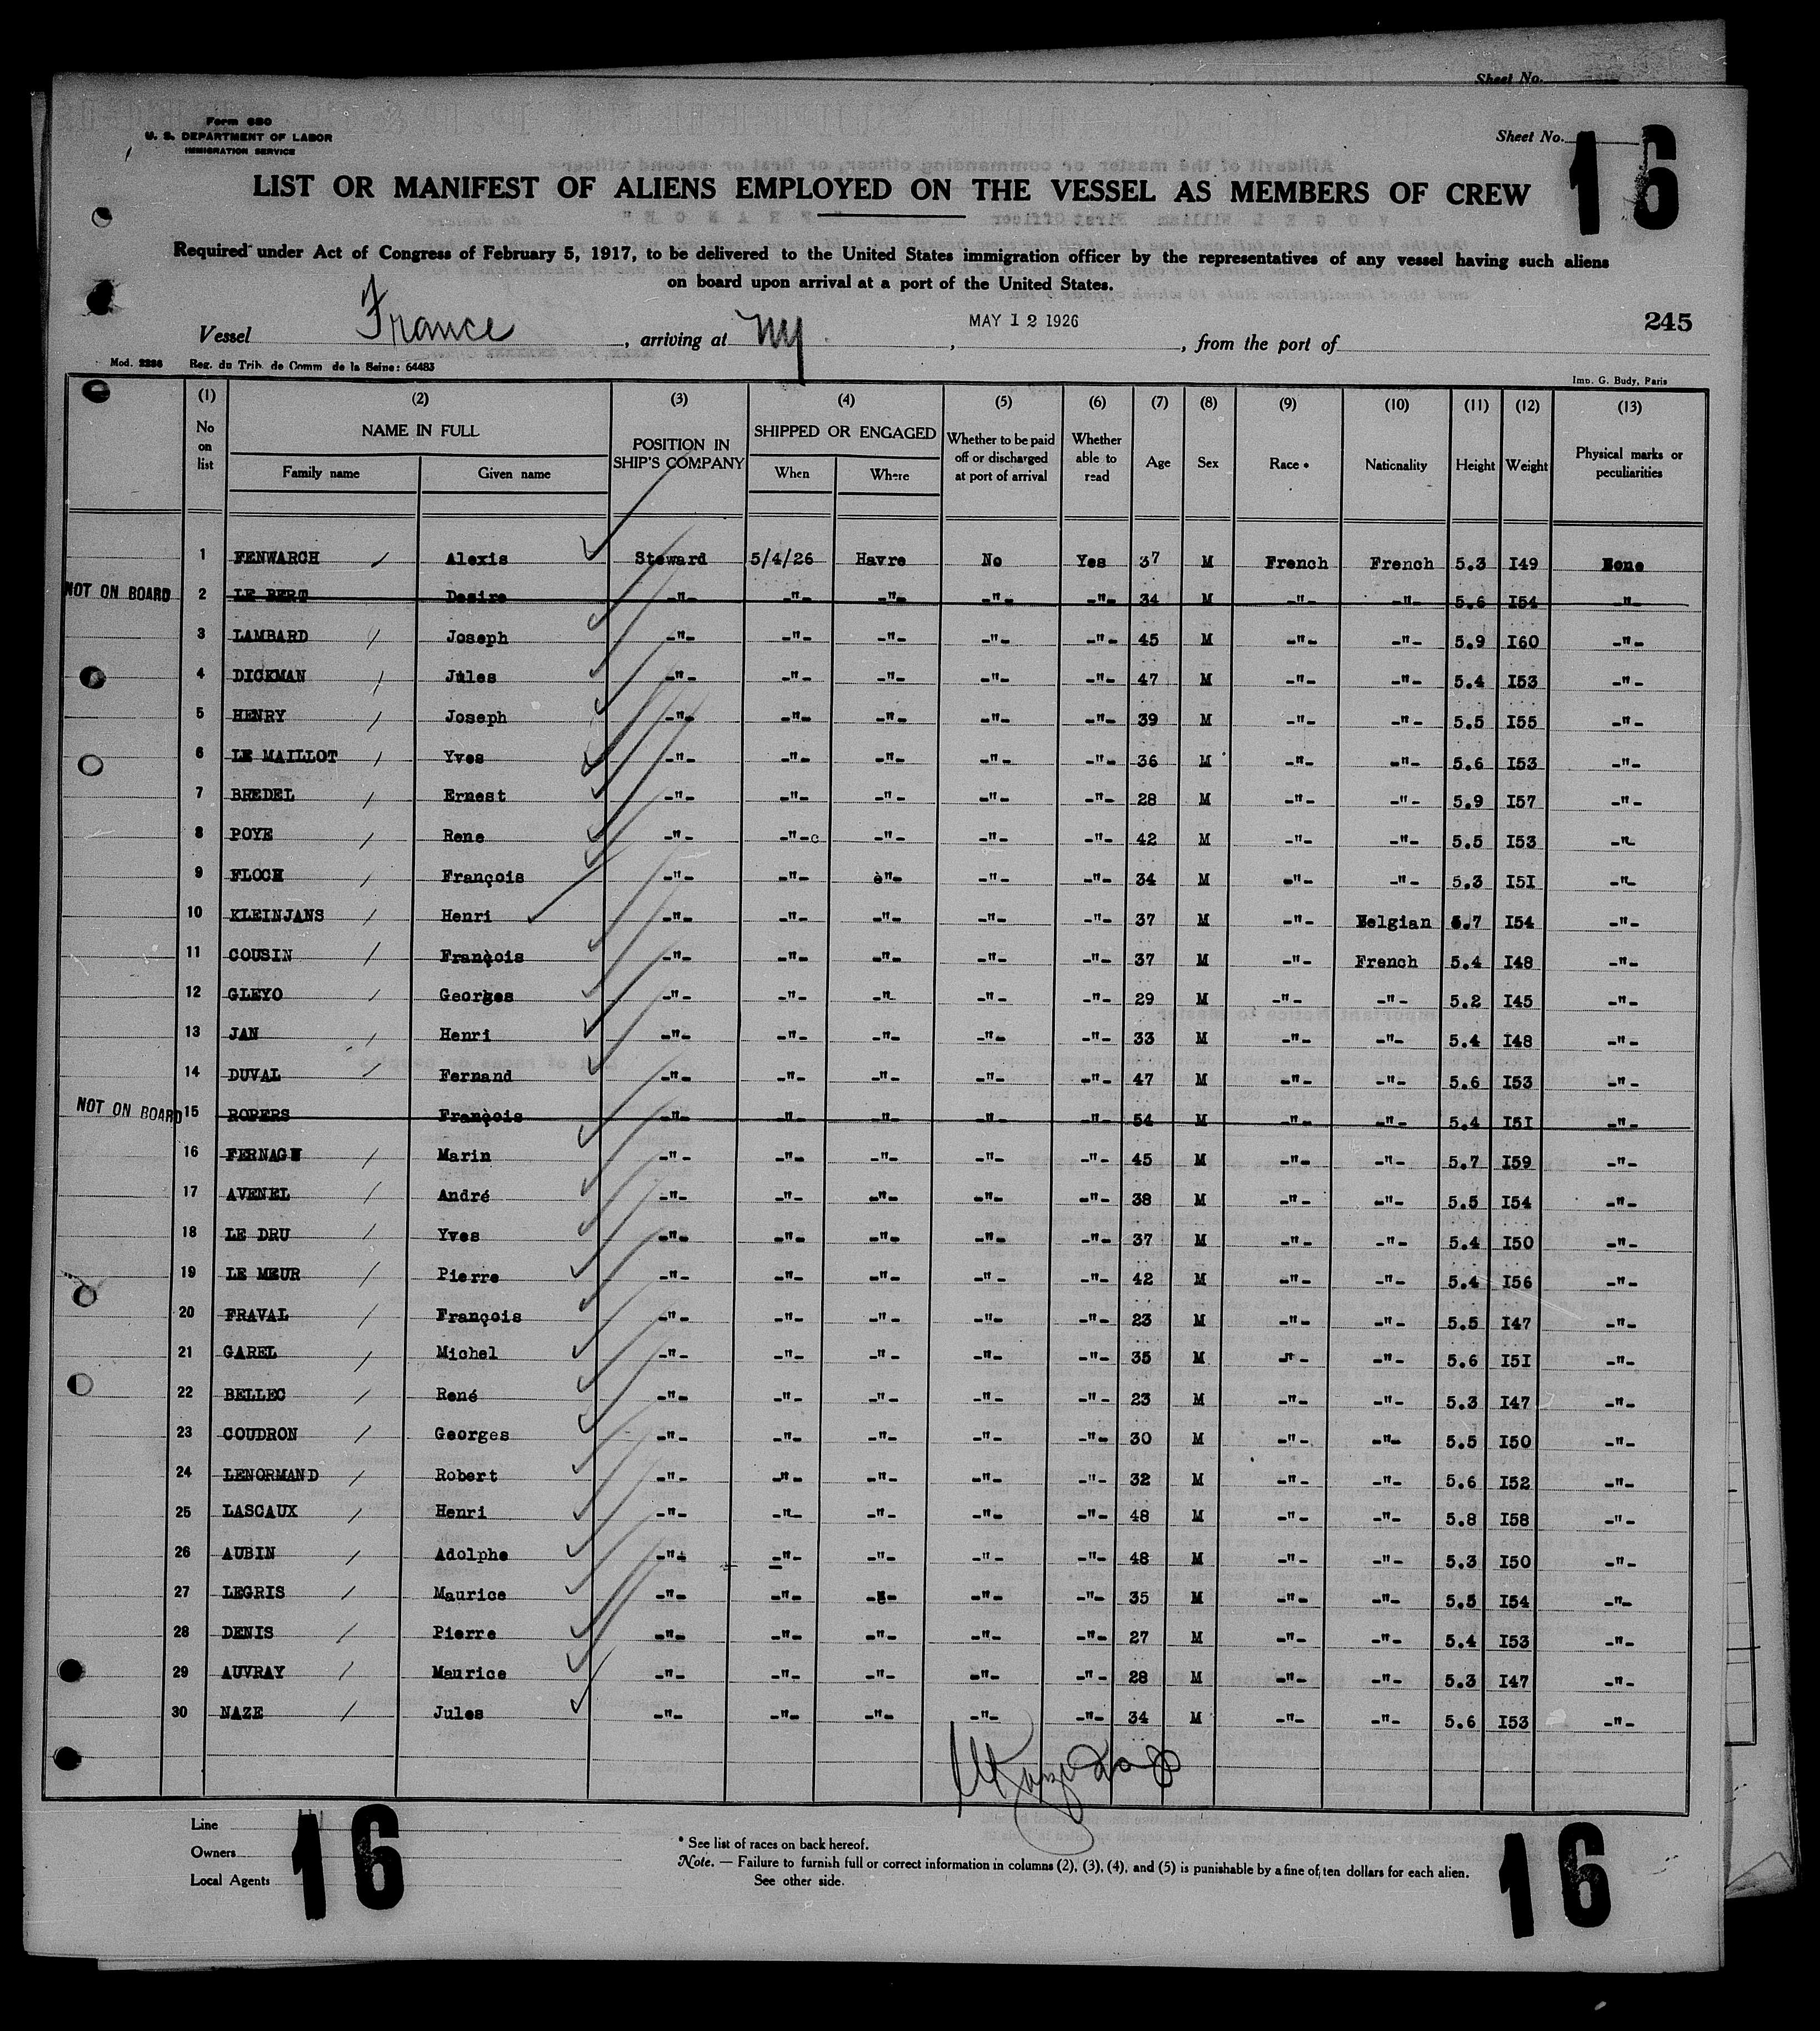 Sheet No.
Form 680
U. S. DEPARTMENT OF LABOR
IMMIGRATION SERVICE
Sheet No. 16
LIST OR MANIFEST OF ALIENS EMPLOYED ON THE VESSEL AS MEMBERS OF CREW
Required under Act of Congress of February 5, 1917, to be delivered to the United States immigration officer by the representatives of any vessel having such aliens
on board upon arrival at a port of the United States.
Vessel France, arriving at NY, MAY 12 1926, from the port of
245
Mod. 2286 Reg. du Trib. de Comm de la Seine: 64483
Imp. G. Budy, Paris
(1) (2) (3) (4) (5) (6) (7) (8) (9) (10) (11) (12) (13)
No on list NAME IN FULL Family name Given name POSITION IN SHIP'S COMPANY SHIPPED OR ENGAGED When Where Whether to be paid off or discharged at port of arrival Whether able to read Age Sex Race • Nationality Height Weight Physical marks or peculiarities
1 FENWARCH Alexis Steward 5/4/26 Havre No Yes 37 M French French 5.3 I49 None
NOT ON BOARD 2 LE BERT Desire -"- -"- -"- -"- -"- 34 M -"- -"- 5.6 I54 -"-
3 LAMBARD Joseph -"- -"- -"- -"- -"- 45 M -"- -"- 5.9 I60 -"-
4 DICKMAN Jules -"- -"- -"- -"- -"- 47 M -"- -"- 5.4 I53 -"-
5 HENRY Joseph -"- -"- -"- -"- -"- 39 M -"- -"- 5.5 I55 -"-
6 LE MAILLOT Yves -"- -"- -"- -"- -"- 36 M -"- -"- 5.6 I53 -"-
7 BREDEL Ernest -"- -"- -"- -"- -"- 28 M -"- -"- 5.9 I57 -"-
8 POYE Rene -"- -"-c -"- -"- -"- 42 M -"- -"- 5.5 I53 -"-
9 FLOCH François -"- -"- è"- -"- -"- 34 M -"- -"- 5.3 I5I -"-
10 KLEINJANS Henri -"- -"- -"- -"- -"- 37 M -"- Belgian 5.7 I54 -"-
11 COUSIN François -"- -"- -"- -"- -"- 37 M -"- French 5.4 I48 -"-
12 GLEYO Georges -"- -"- -"- -"- -"- 29 M -"- -"- 5.2 I45 -"-
13 JAN Henri -"- -"- -"- -"- -"- 33 M -"- -"- 5.4 I48 -"-
14 DUVAL Fernand -"- -"- -"- -"- -"- 47 M -"- -"- 5.6 I53 -"-
NOT ON BOARD 15 ROPERS François -"- -"- -"- -"- -"- 54 M -"- -"- 5.4 I5I -"-
16 FERNAGH Marin -"- -"- -"- -"- -"- 45 M -"- -"- 5.7 I59 -"-
17 AVENEL André -"- -"- -"- -"- -"- 38 M -"- -"- 5.5 I54 -"-
18 LE DRU Yves -"- -"- -"- -"- -"- 37 M -"- -"- 5.4 I50 -"-
19 LE MEUR Pierre -"- -"- -"- -"- -"- 42 M -"- -"- 5.4 I56 -"-
20 FRAVAL François -"- -"- -"- -"- -"- 23 M -"- -"- 5.5 I47 -"-
21 GAREL Michel -"- -"- -"- -"- -"- 35 M -"- -"- 5.6 I5I -"-
22 BELLEC René -"- -"- -"- -"- -"- 23 M -"- -"- 5.3 I47 -"-
23 COUDRON Georges -"- -"- -"- -"- -"- 30 M -"- -"- 5.5 I50 -"-
24 LENORMAND Robert -"- -"- -"- -"- -"- 32 M -"- -"- 5.6 I52 -"-
25 LASCAUX Henri -"- -"- -"- -"- -"- 48 M -"- -"- 5.8 I58 -"-
26 AUBIN Adolphe -"- -"- -"- -"- -"- 48 M -"- -"- 5.3 I50 -"-
27 LEGRIS Maurice -"- -"- -"- -"- -"- 35 M -"- -"- 5.5 I54 -"-
28 DENIS Pierre -"- -"- -"- -"- -"- 27 M -"- -"- 5.4 I53 -"-
29 AUVRAY Maurice -"- -"- -"- -"- -"- 28 M -"- -"- 5.3 I47 -"-
30 NAZE Jules -"- -"- -"- -"- -"- 34 M -"- -"- 5.6 I53 -"-
Line
Owners
Local Agents
16
* See list of races on back hereof.
Note. — Failure to furnish full or correct information in columns (2), (3), (4), and (5) is punishable by a fine of ten dollars for each alien.
See other side.
16